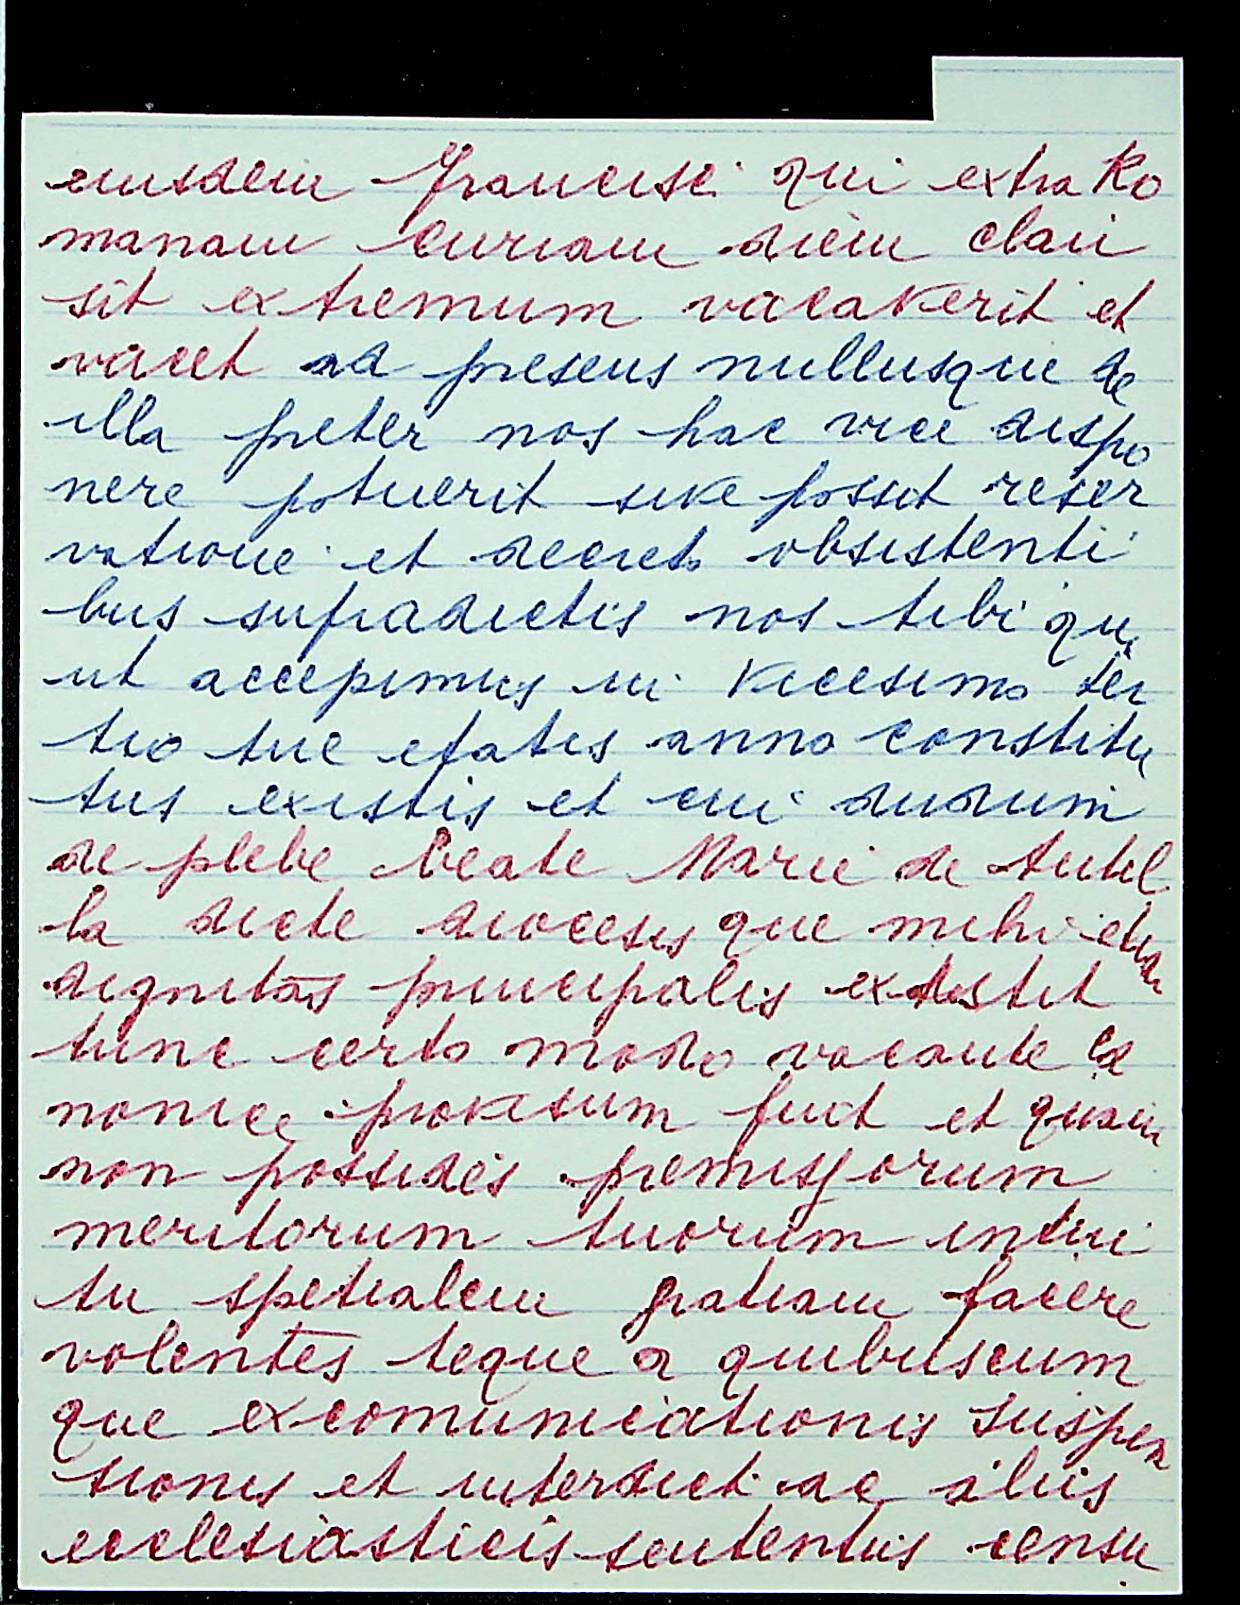 eiusdem Francisci qui extra Ro
manam Curiam diem clau
sit extremum vacaverit et
vacet ad presens nullusque de
illa preter nos hac vice dispo
nere potuerit sive possit reser
vatione et decreto obsistenti
bus supradictis nos tibi qui
ut accepimus in vicesimo ter
tio tue etatis anno constitu
tus existis et cui dudum
de plebe beate Marie de Tutel
la dicte diocesis que inibi etiam
dignitas principalis existit
tunc certo modo vacante ca
nonice provisum fuit et quam
non possides premissorum
meritorum tuorum intui
tu spetialem gratiam facere
volentes teque a quibuscum
que excomunicationis suspen
sionis et interdicti ac aliis
ecclesiasticis sententiis censu